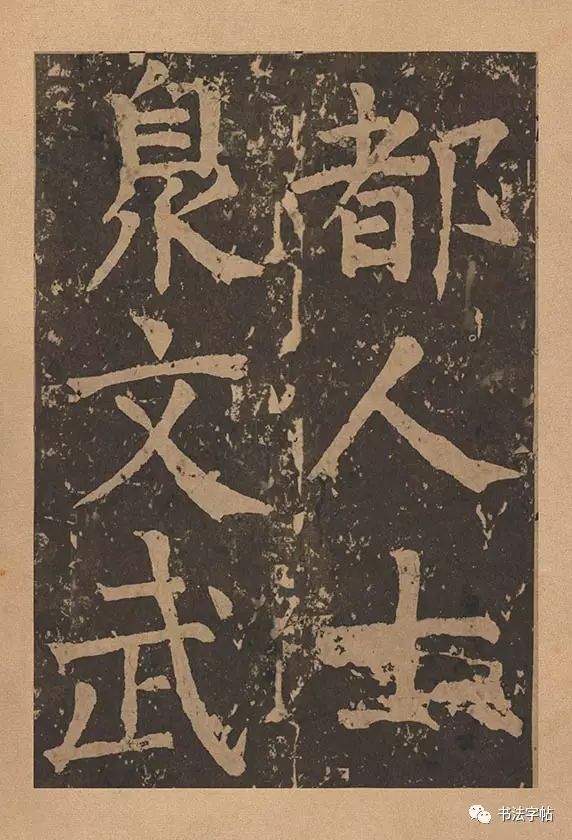 都人士
臮文武
书法字帖